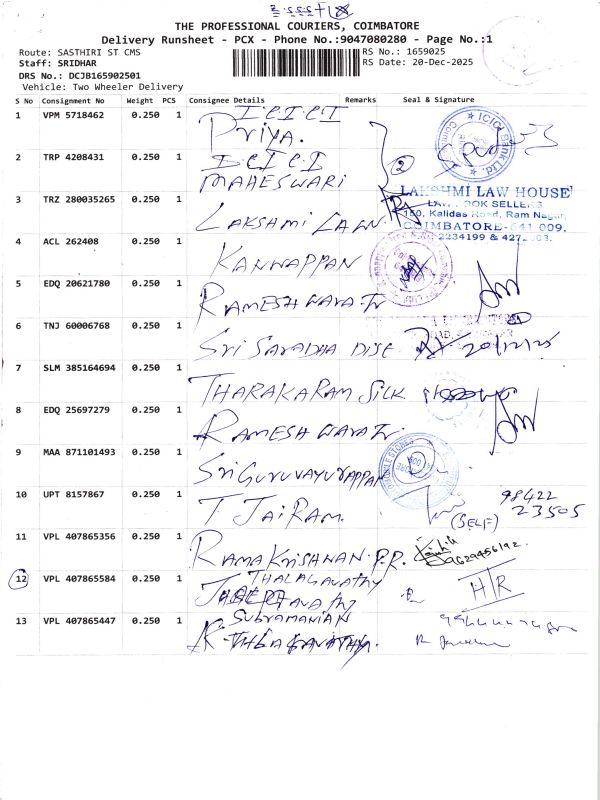 THE PROFESSIONAL COURIERS, COIMBATORE
Delivery Runsheet - PCX - Phone No.:9047080280 - Page No.:1
Route: SASTHIRI ST CMS
RS No.: 1659025
Staff: SRIDHAR
RS Date: 20-Dec-2025
DRS No.: DCJB165902501
Vehicle: Two Wheeler Delivery
S No Consignment No Weight PCS Consignee Details Remarks Seal & Signature
1 VPM 5718462 0.250 1 I.C.I.C.I
Priya.
ICICI BANK Ltd.
2 TRP 4208431 0.250 1 I.C.I.C.I
MAHESWARI
2
LAKSHMI LAW HOUSE
LAW BOOK SELLERS
150, Kalidas Road, Ram Nagar,
COIMBATORE-641 009.
3 TRZ 280035265 0.250 1 LAKSHMI LAW.
2234199 &
4 ACL 262408 0.250 1 KANNAPPAN
5 EDQ 20621780 0.250 1 RAMESH
6 TNJ 60006768 0.250 1 Sri Saradha DISE 20/12/25
7 SLM 385164694 0.250 1 THARAKARAM SILK
8 EDQ 25697279 0.250 1 RAMESH
9 MAA 871101493 0.250 1 Sri Guruvayurappan
10 UPT 8157867 0.250 1 T JAIRAM.
(SELF)
98422
23505
11 VPL 407865356 0.250 1 RAMAKRISHNAN.P.R.
9629456192
12 VPL 407865584 0.250 1 THALAGAVATHY
H/R
13 VPL 407865447 0.250 1 SUBRAMANIAN